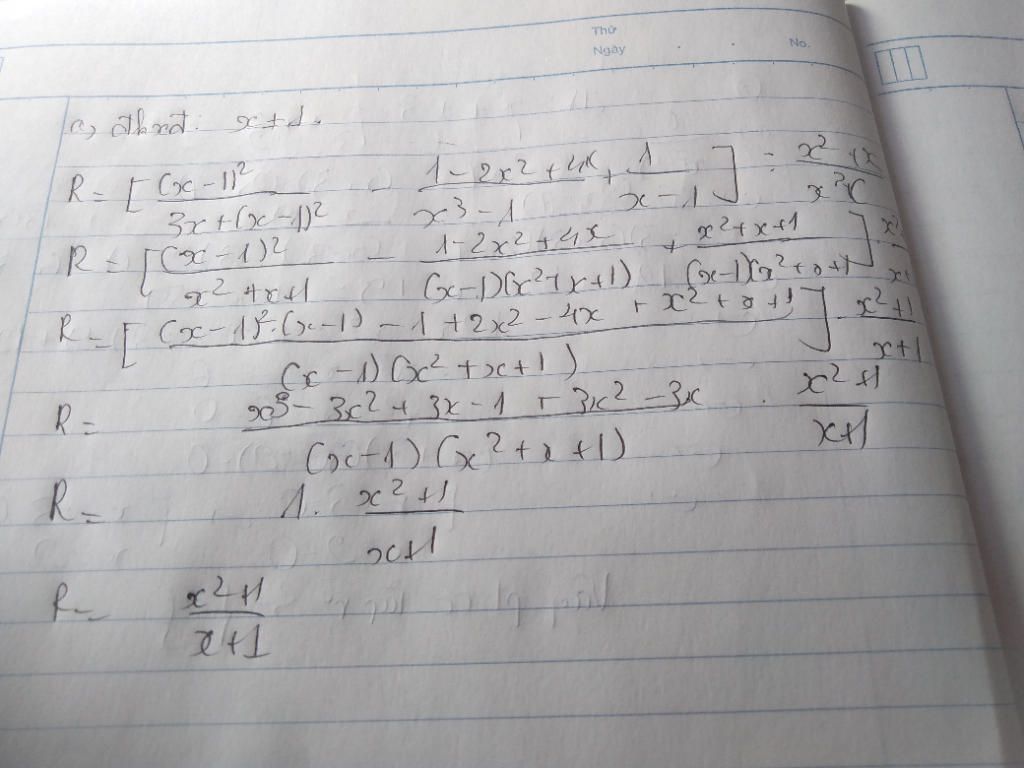 Thứ
Ngày . . No.
a, đkxđ: x ≠ 1.
R = [ (x-1)²/(3x+(x-1)²) - (1-2x²+4x)/(x³-1) + 1/(x-1) ] : (x²+x)/
R = [ (x-1)²/(x²+x+1) - (1-2x²+4x)/((x-1)(x²+x+1)) + (x²+x+1)/((x-1)(x²+x+1)) ]
R = [ ((x-1)².(x-1) - 1 + 2x² - 4x + x² + x + 1)/((x-1)(x²+x+1)) ] . (x²+1)/(x+1)
R = (x³ - 3x² + 3x - 1 + 3x² - 3x)/((x-1)(x²+x+1)) . (x²+1)/(x+1)
R = 1. (x²+1)/(x+1)
R = (x²+1)/(x+1)